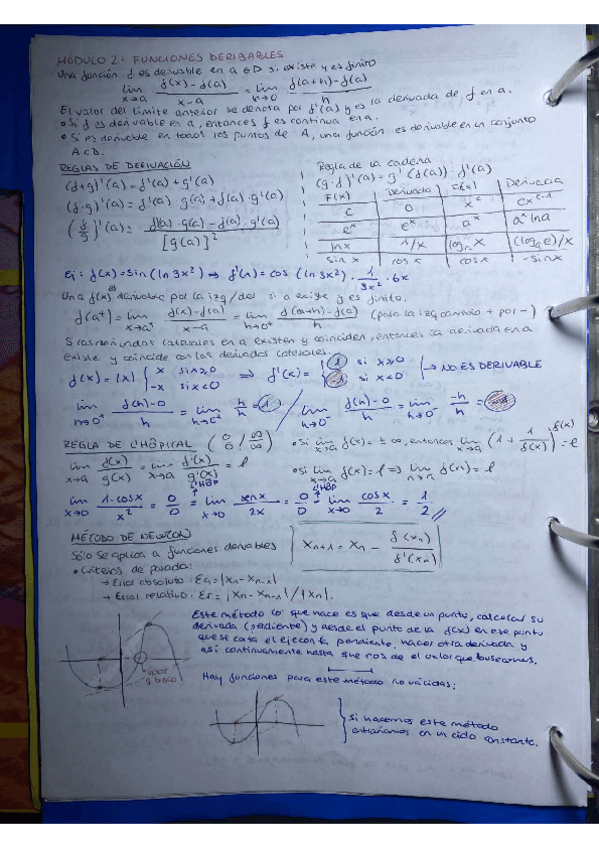 MÓDULO 2: FUNCIONES DERIVABLES
Una función f es derivable en a ∈ D si existe y es finito
lim x→a (f(x)-f(a))/(x-a) = lim h→0 (f(a+h)-f(a))/h
El valor del límite anterior se denota por f'(a) y es la derivada de f en a.
• Si f es derivable en a, entonces f es continua en a.
• Si es derivable en todos los puntos de A, una función es derivable en un conjunto
A⊂D.
REGLAS DE DERIVACIÓN
(f+g)'(a) = f'(a)+g'(a)
(f·g)'(a) = f'(a)·g(a)+f(a)·g'(a)
(f/g)'(a) = (f'(a)·g(a)-f(a)·g'(a))/[g(a)]²
Regla de la cadena
(g·f)'(a) = g'(f(a))·f'(a)
F(x) Derivada F(x) Derivada
c 0 x^c cx^(c-1)
e^x e^x a^x a^x ln a
ln x 1/x log_a x (log_a e)/x
sin x cos x cos x -sin x
Ej: f(x)=sin(ln 3x²) ⇒ f'(x)=cos(ln 3x²)·1/3x²·6x
Una f(x) es derivable por la izq/der si a existe y es finito.
f'(a⁺)=lim x→a⁺ (f(x)-f(a))/(x-a) = lim h→0⁺ (f(a+h)-f(a))/h (para la izq cambio + por -)
Si las derivadas laterales en a existen y coinciden, entonces la derivada en a
existe y coincide con las derivadas laterales.
f(x)=|x| { x si x≥0 -x si x<0 ⇒ f'(x)= { 1 si x≥0 -1 si x<0 → NO ES DERIVABLE
lim h→0⁺ (f(h)-0)/h = lim h→0⁺ h/h = 1 / lim h→0⁻ (f(h)-0)/h = lim h→0⁻ -h/h = -1
REGLA DE L'HÔPITAL (0/0 / ∞/∞)
lim x→a f(x)/g(x) = lim x→a f'(x)/g'(x) = l
• Si lim x→a f(x) = ±∞, entonces lim x→a (1+1/f(x))^f(x) = e
• Si lim x→a f(x)=l ⇒ lim n→a f(n)=l
lim x→0 (1-cosx)/x² = 0/0 = L'HÔP lim x→0 senx/2x = 0/0 = L'HÔP lim x→0 cosx/2 = 1/2
MÉTODO DE NEWTON
Sólo se aplica a funciones derivables
x_(n+1) = x_n - f(x_n)/f'(x_n)
• Criterios de parada:
→ Error absoluto: Ea=|xn-xn-1|
→ Error relativo: Er=|xn-xn-1|/|xn|.
Este método lo que hace es que desde un punto, calcular su
derivada (pendiente) y desde el punto de la f(x) en ese punto
que se corta el eje con la pendiente, hacer otra derivada y
así continuamente hasta que nos dé el valor que buscamos.
valor
q busco
Hay funciones para este método no válidas:
Si hacemos este método
entraríamos en un ciclo constante.